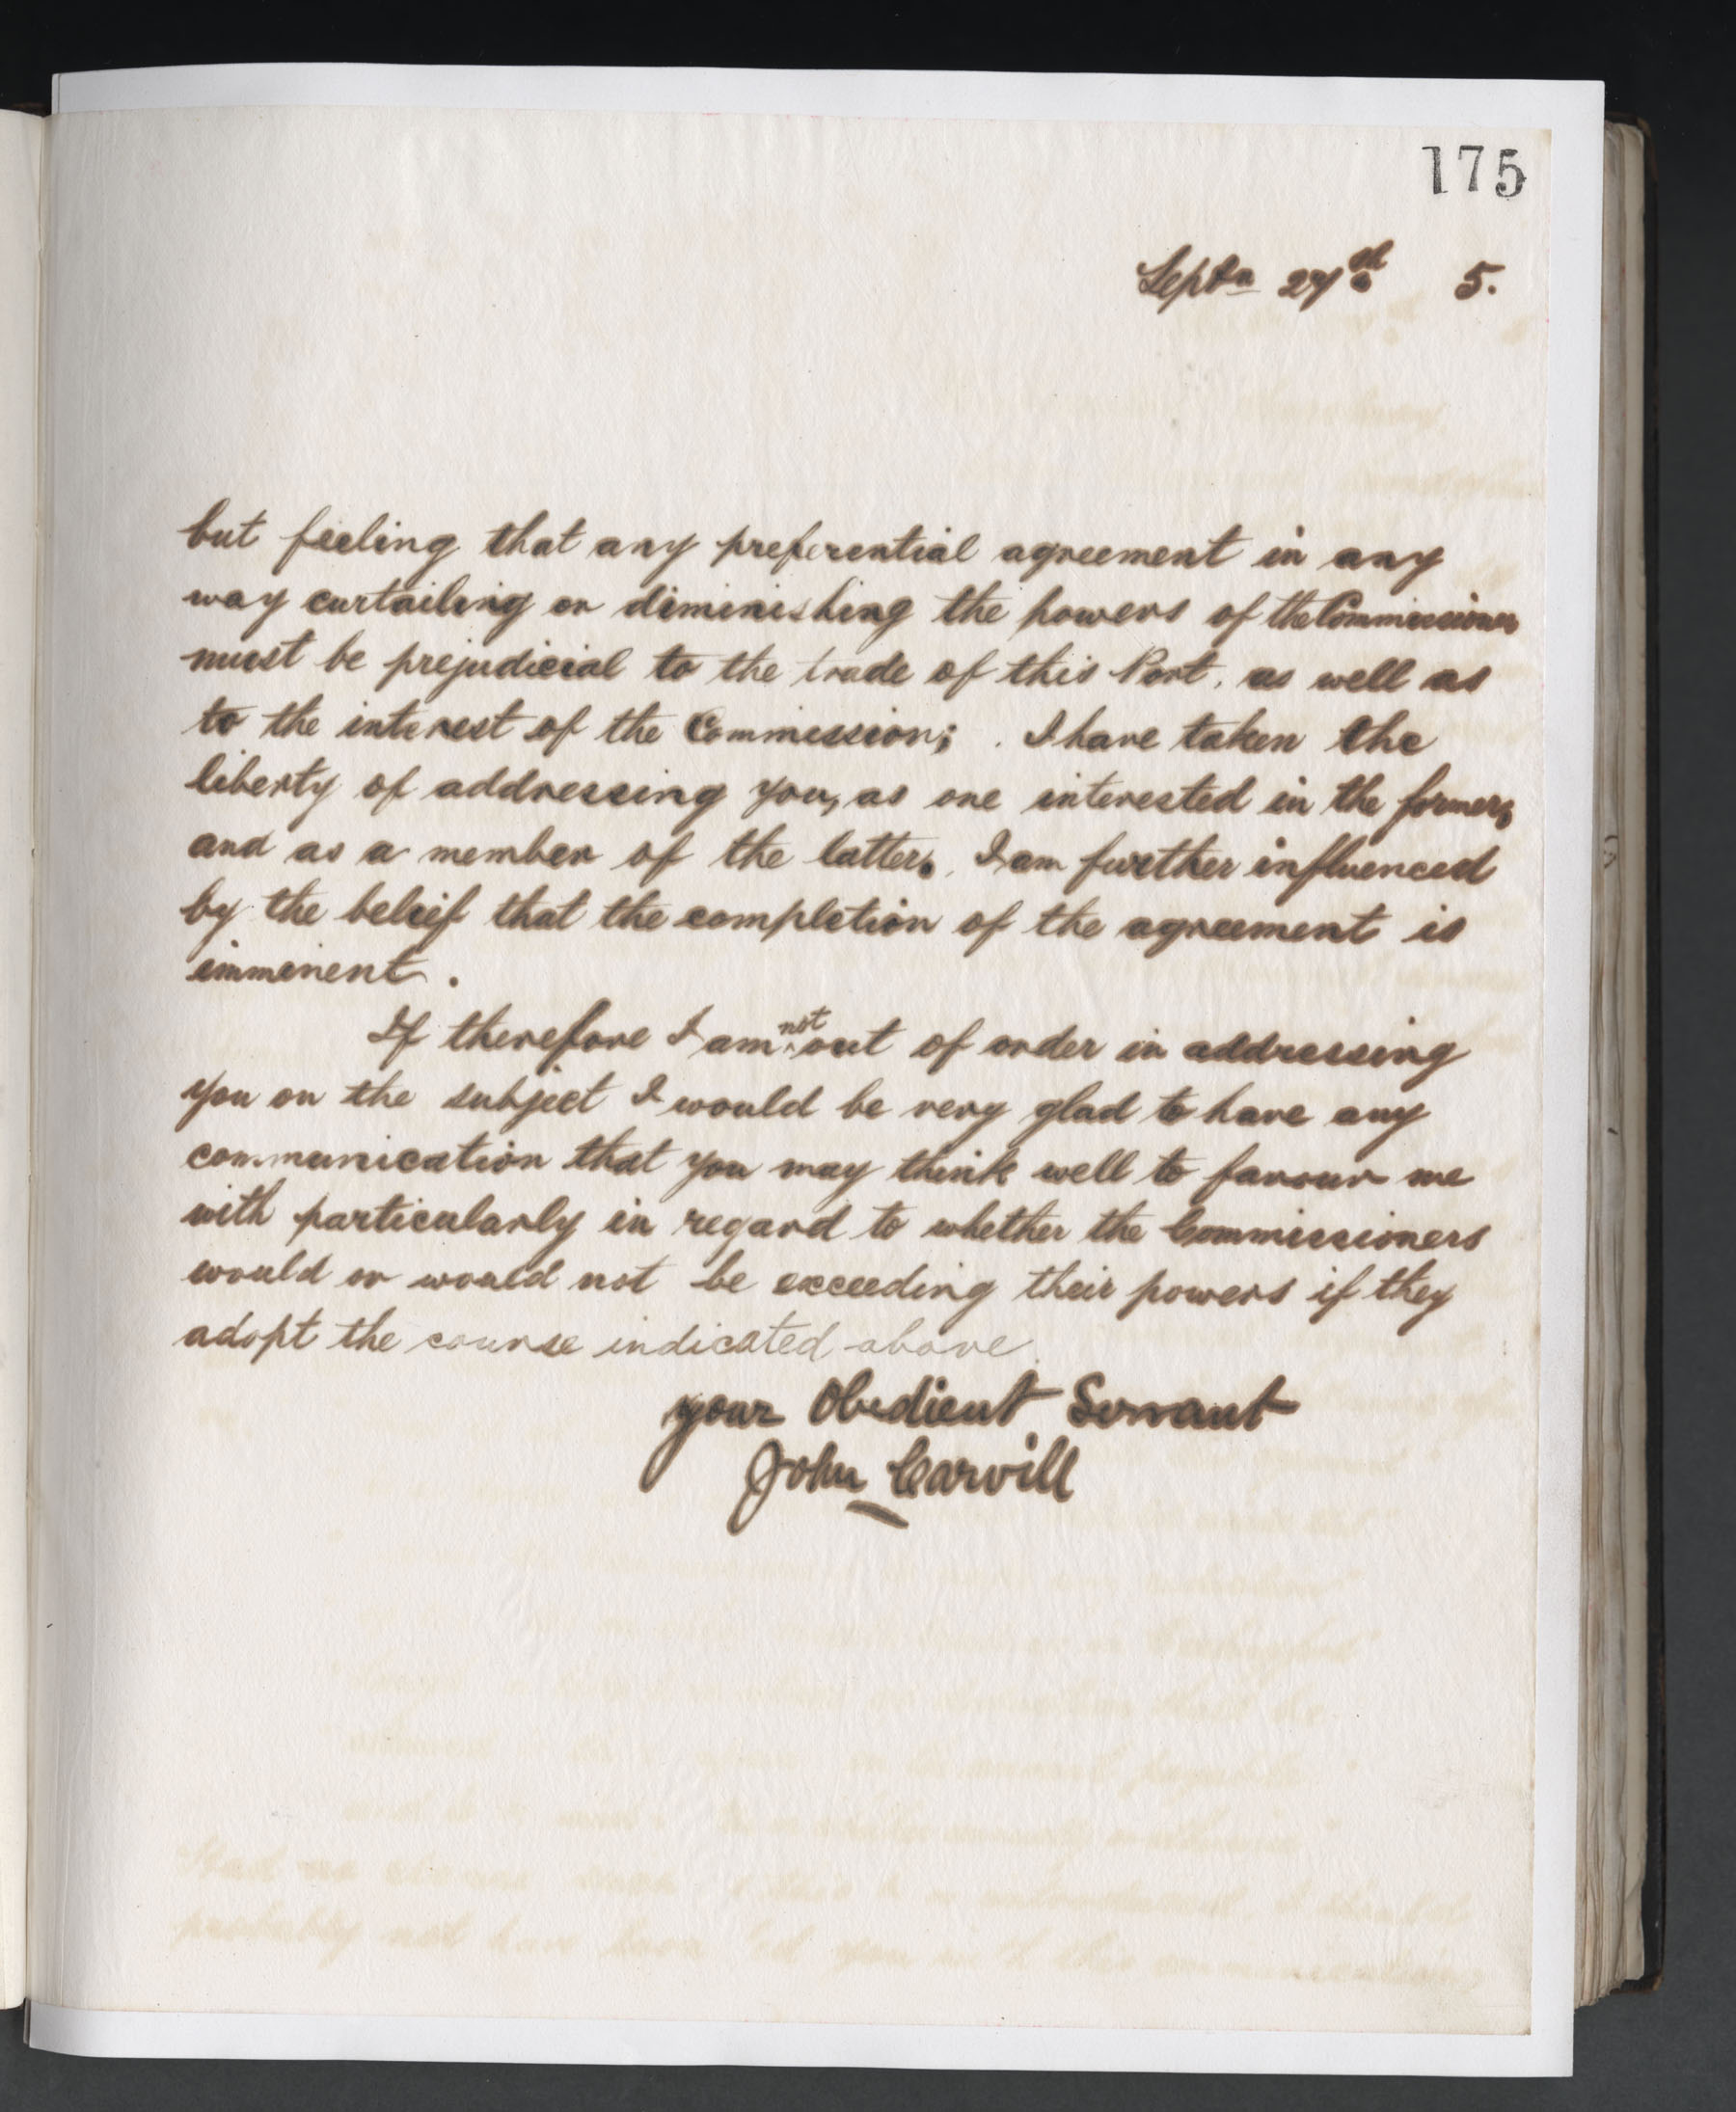 175
Septr 27th 5.
but feeling that any preferential agreement in any
way curtailing or diminishing the powers of the Commissioners
must be prejudicial to the trade of this Port, as well as
to the interest of the Commission; . I have taken the
liberty of addressing you, as one interested in the former,
and as a member of the latter. I am further influenced
by the beleif that the completion of the agreement is
imminent.
If therefore I am not out of order in addressing
you on the subject I would be very glad to have any
communication that you may think well to favour me
with particularly in regard to whether the Commissioners
would or would not be exceeding their powers if they
adopt the course indicated above.
your Obedient Servant
John Carvill